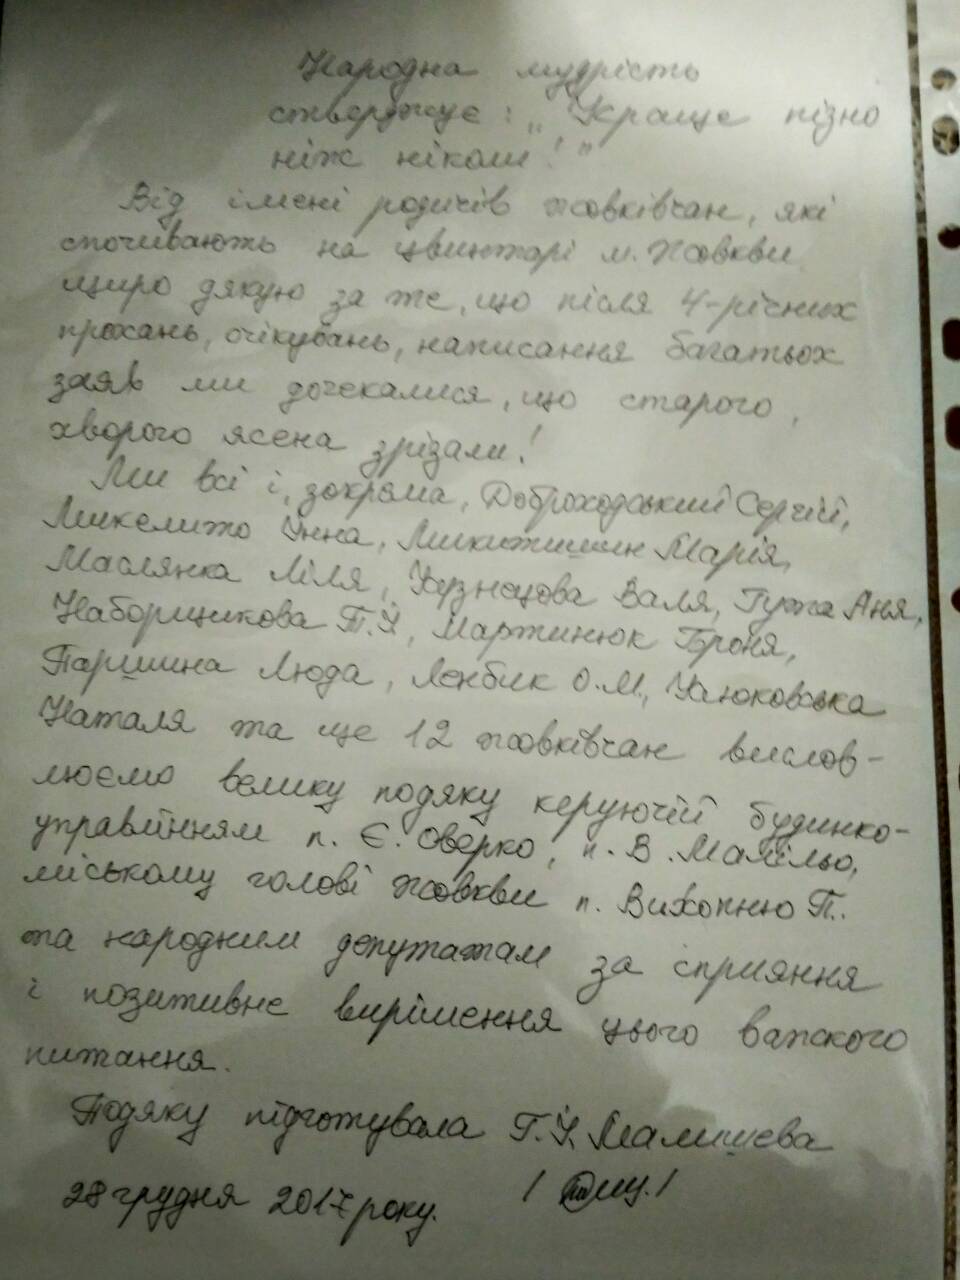 Народна мудрість
стверджує: „Краще пізно
ніж ніколи!"
Від імені родичів жовківчан, які
спочивають на цвинтарі м. Жовкви
щиро дякую за те, що після 4-річних
прохань, очікувань, написання багатьох
заяв ми дочекалися, що старого,
хворого ясена зрізали!
Ми всі і, зокрема, Доброходський Сергій,
Инна, Микитишин Марія,
Маслянка Ліля, Кузнєцова Валя, Гута Аня,
Наборщикова Мартинюк Броня,
Паршина Люда, О.М.,
Наталя та ще 12 жовківчан вислов-
люємо велику подяку керуючій будинко-
управлінням п. Є. Оверко, п. В.
міському голові Жовкви п. Вихопню П.
та народним депутатам за сприяння
і позитивне вирішення цього важкого
питання.
Подяку підготувала Малишева
28 грудня 2017 року.